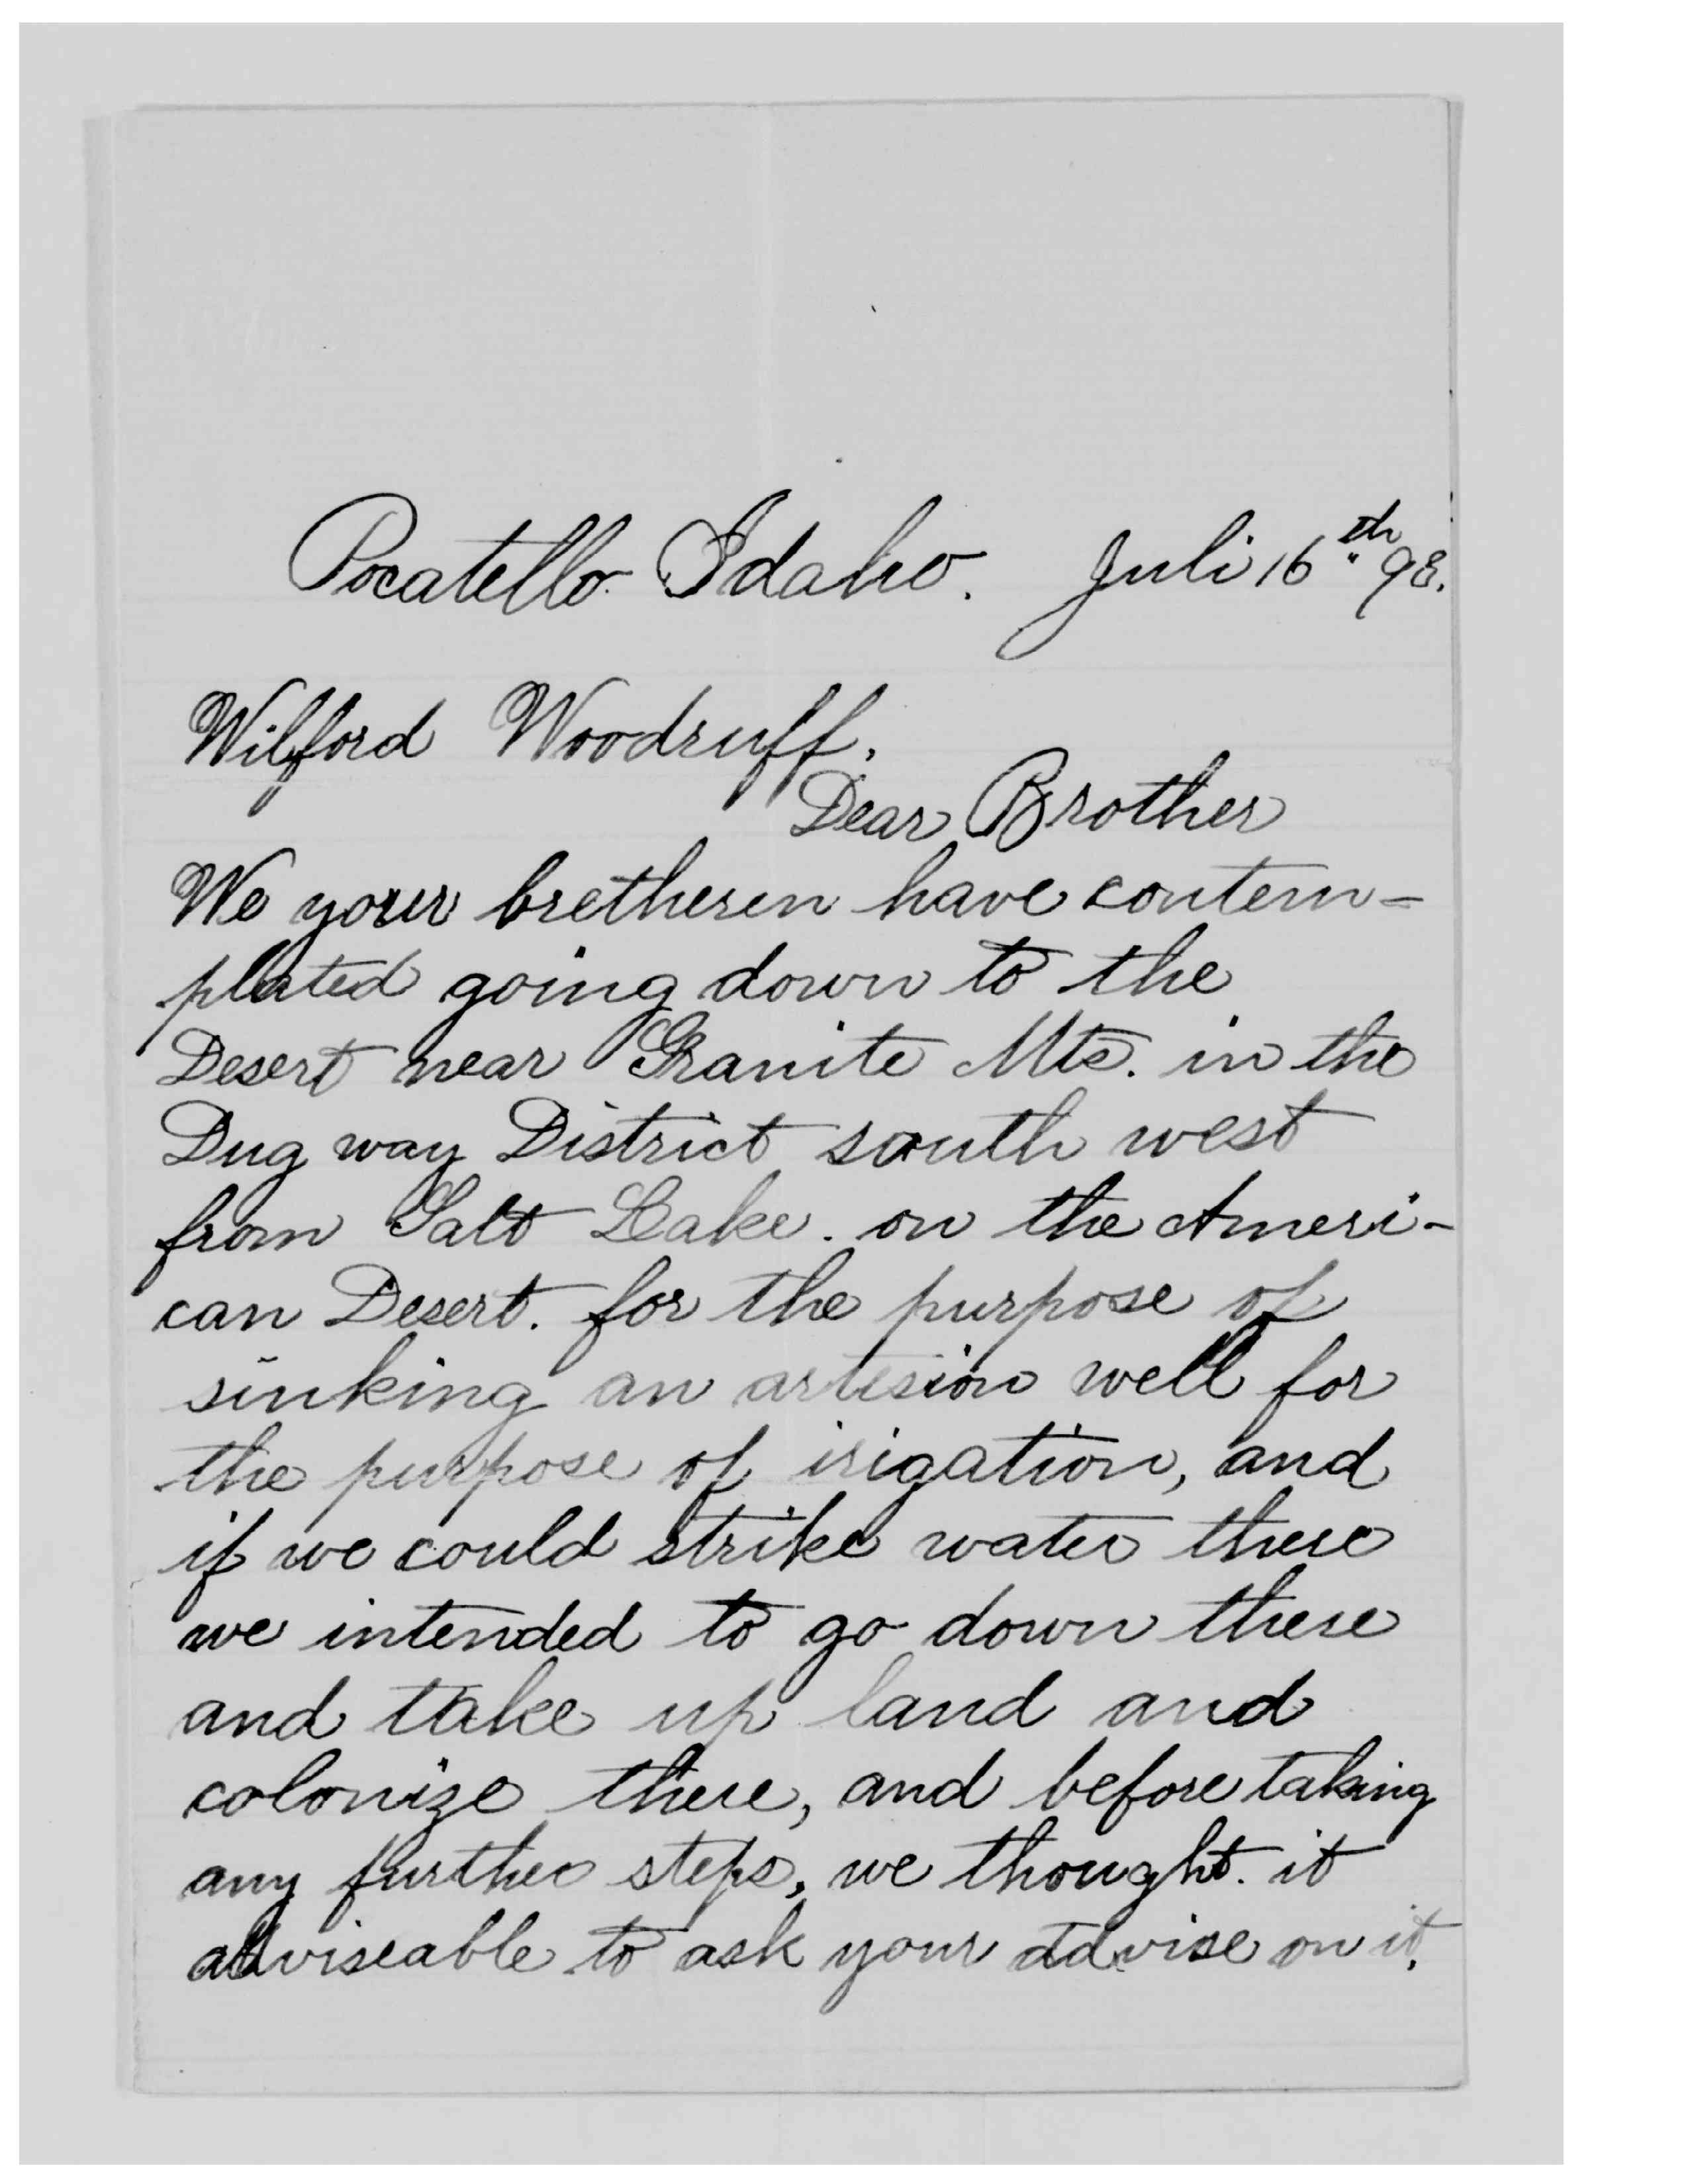 Pocatello Idaho. Juli 16th 98.
Wilford Woodruff.
Dear Brother
We your bretheren have contem-
plated going down to the
Desert near Granite Mts. in the
Dug way District south west
from Salt Lake. on the Ameri-
can Desert. for the purpose of
sinking an artesion well for
the purpose of irigation, and
if we could strike water there
we intended to go down there
and take up land and
colonize there, and before taking
any further steps, we thought. it
adviseable to ask your advise on it.